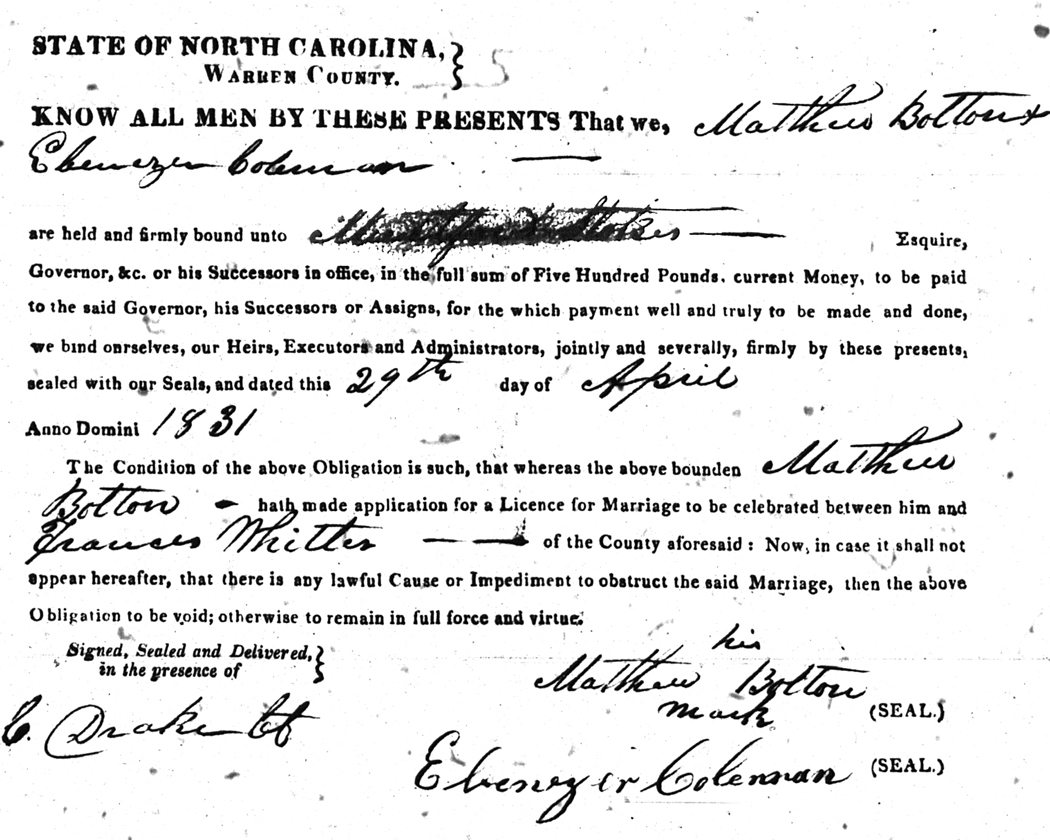 STATE OF NORTH CAROLINA, }
WARREN COUNTY. 5
KNOW ALL MEN BY THESE PRESENTS That we, Matthew Botton &
Ebenezer Coleman —
are held and firmly bound unto Stokes — Esquire,
Governor, &c. or his Successors in office, in the full sum of Five Hundred Pounds, current Money, to be paid
to the said Governor, his Successors or Assigns, for the which payment well and truly to be made and done,
we bind ourselves, our Heirs, Executors and Administrators, jointly and severally, firmly by these presents,
sealed with our Seals, and dated this 29th day of April
Anno Domini 1831
The Condition of the above Obligation is such, that whereas the above bounden Matthew
Botton — hath made application for a Licence for Marriage to be celebrated between him and
Frances Whitter — of the County aforesaid : Now, in case it shall not
appear hereafter, that there is any lawful Cause or Impediment to obstruct the said Marriage, then the above
Obligation to be void; otherwise to remain in full force and virtue.
Signed, Sealed and Delivered, }
in the presence of
his
Matthew Botton
mark (SEAL.)
C. Drake Ct
Ebenezer Coleman (SEAL.)